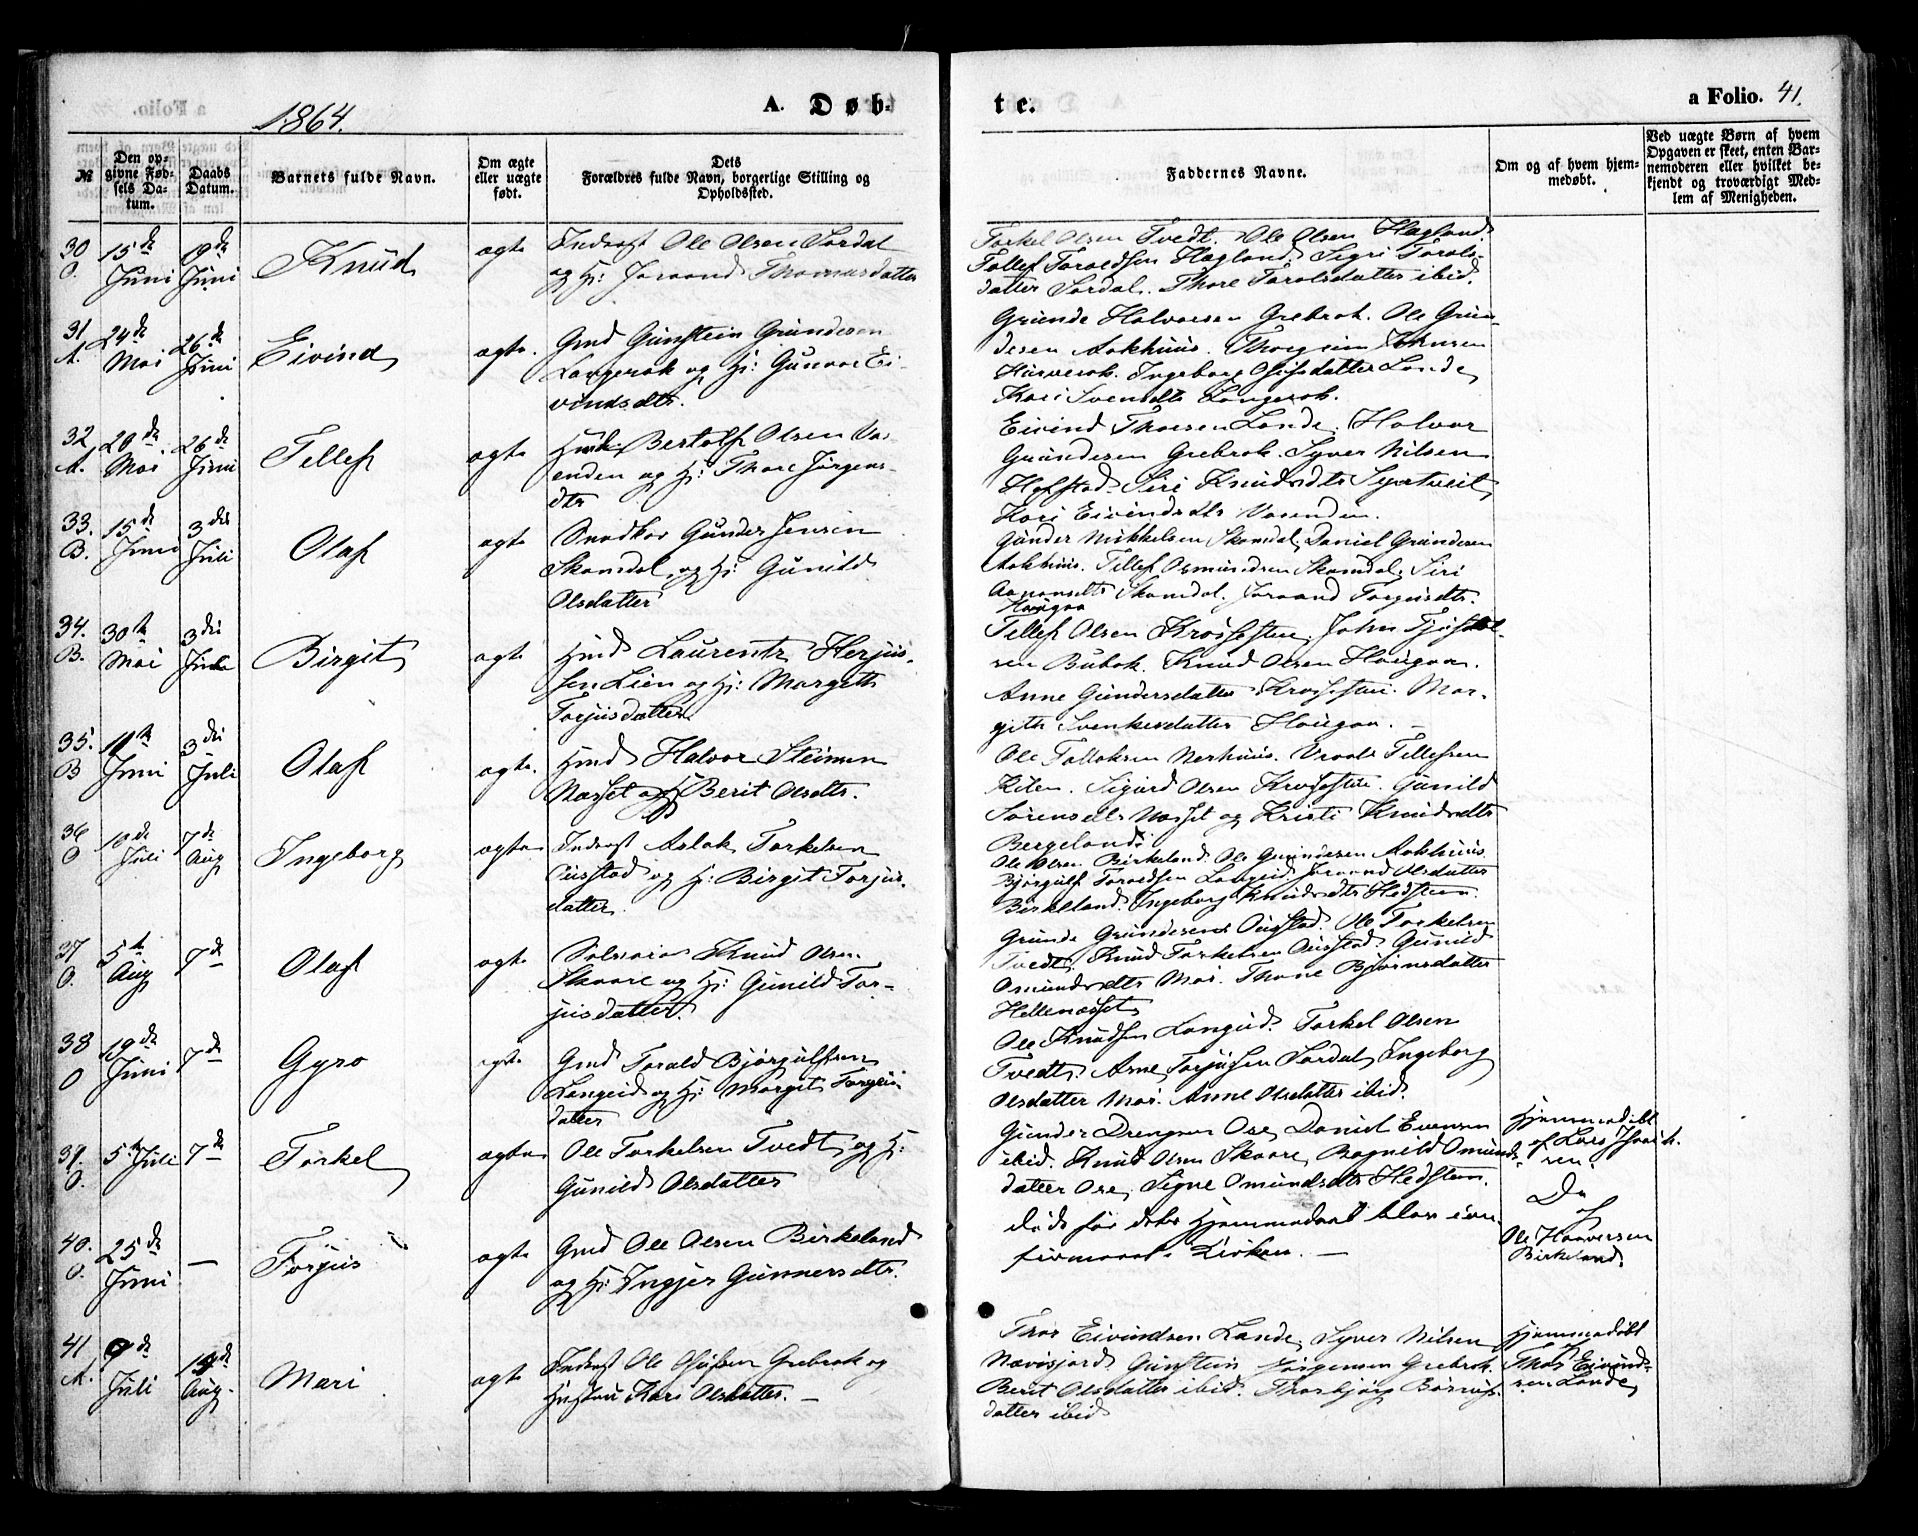 1864.
A. Døb-
te.
a Folio. 41.
№
Den op-
givne Fød-
sels Da-
tum.
Daabs
Datum.
Barnets fulde Navn.
Om ægte
eller uægte
født.
Dets
Forældres fulde Navn, borgerlige Stilling og
Opholdssted.
Faddernes Navne.
Om og af hvem hjem-
medøbt.
Ved uægte Børn af hvem
Opgaven er skeet, enten Bar-
nemoderen eller hvilket be-
kjendt og troværdigt Med-
lem af Menigheden.
30 15de 19de
O. Juni Juni
Knud
ægte
Inderst Ole Olsen Sordal
og H: Joraand Thomasdatter
Torkel Olsen Tvedt. Ole Olsen Hægland
Tollef Taroldsen Hægland, Sigri Tarols-
datter Sordal. Thore Tarolsdatter ibid.
31 24de 26de
A. Mai Juni
Eivind
ægte.
Gmd Gunstein Grundesen
Langerak og H: Gunvor Ei-
vindsdtr.
Grunde Halvorsen Grebrok. Ole Grun-
desen Aakhuus. Thorgrim Jensen
Ingeborg Olufsdatter Lande
Kari Svensdtr Langerak.
32 26de
A. Mai Juni
Tellef
ægte
Hmd: Bertolf Olsen Va-
enden og H: Thore Jørgens-
dtr
Eivind Thorsen Lande. Halvor
Grundesen Grebrok. Syver Nilsen
Hofstad. Siri Knudsdtr Syrtveit
Kari Eivindsdtr Vasenden.
33. 15de 3die
B. Juni Juli
Olaf
ægte
Gunder Jensen
Skomdal, og H: Gunild
Olsdatter
Gunder Mikkelsen Skomdal, Daniel Grundesen
Aakhuus. Tellef Osmundsen Skomdal, Siri
Aanonsdtr Skomdal. Joraand Torgusdtr.
Haugaa
34. 30te 3die
B. Mai
Birgit
ægte
Hmd Laurentz Herjus-
sen Lien og H: Margith
Torjusdatter
Tellef Olsen Krossesten, John
sen Bubak. Knud Olsen Haugaa.
Anne Gundersdatter Krossesten. Mar-
gith Svenkesdatter Haugaa. —
35. 3die
B Juni Juli
Olaf
ægte.
Hmd Halvor Steinsen
Næsset og H Berit Olsdtr.
Ole Tallaksen Nerhuus. Vraal Tellefsen
Kilen. Sigurd Olsen Krossesten. Gunild
Sørensdtr Næsset og Kristi Knudsdtr
Bergeland.
36 10de 7de
O Juli Aug
Ingeborg
ægte
Inderst Aslak Torkelsen
Ousstad og H: Birgit Torjus-
datter.
Ole Olsen Birkeland. Ole Gundersen Aakhuus.
Bjørgulf Taroldsen Langeid, Joraand Olsdatter
Birkeland. Ingeborg Knudsdtr Hedsteen
37 5te 7de
O. Aug
Olaf
ægte
Selveier Knud Olsen
Skaare og H: Gunild Tor-
jusdatter.
Grunde Grundesen Ousstad. Ole Torkelsen
Tvedt, Knud Torkelsen Ousstad. Gunild
Osmundsdtr Moi. Thone Bjørnsdatter
Hellenæsset
38 19de 7de
O Juni
Gyro
ægte
Gmd Torald Bjørgulfsen
Langeid og H: Margit Torgrims
datter
Ole Knudsen Langeid. Torkel Olsen
Tvedt. Arne Torjusen Sordal, Ingeborg
Olsdatter Moi. Anne Olsdatter ibid.
39. 5te Juli 7de
O.
Torkel
ægte
Ole Torkelsen Tvedt og H:
Gunild Olsdatter
Gunder Drengsen Ose, Daniel Evensen
ibid. Knud Olsen Skaare, Ragnild Omunds-
datter Ose, Signe Omundsdtr Hedsteen.
Hjemmedøbt
af Lars Isaak-
sen.
40. 25de
O. Juni —
Torjus
ægte
Gmd Ole Olsen Birkeland
og H: Ingjer Gunnersdtr.
døde før dets Hjemmedaab blev con-
firmeret i Kirken. —
Do
af
Ole Haaversen
Birkeland
41 9de 19de
A. Juli Aug.
Mari
ægte
Inderst Ole Olufsen Grebrok og
Hustru Kari Olsdatter. —
Thor Eivindsen Lande, Syver Nilsen
Gunstein Jørgensen Grebrok.
Berit Olsdatter ibid. Thorbjørg
datter ibid
Hjemmedøbt
Thor Eivind-
sen Lande